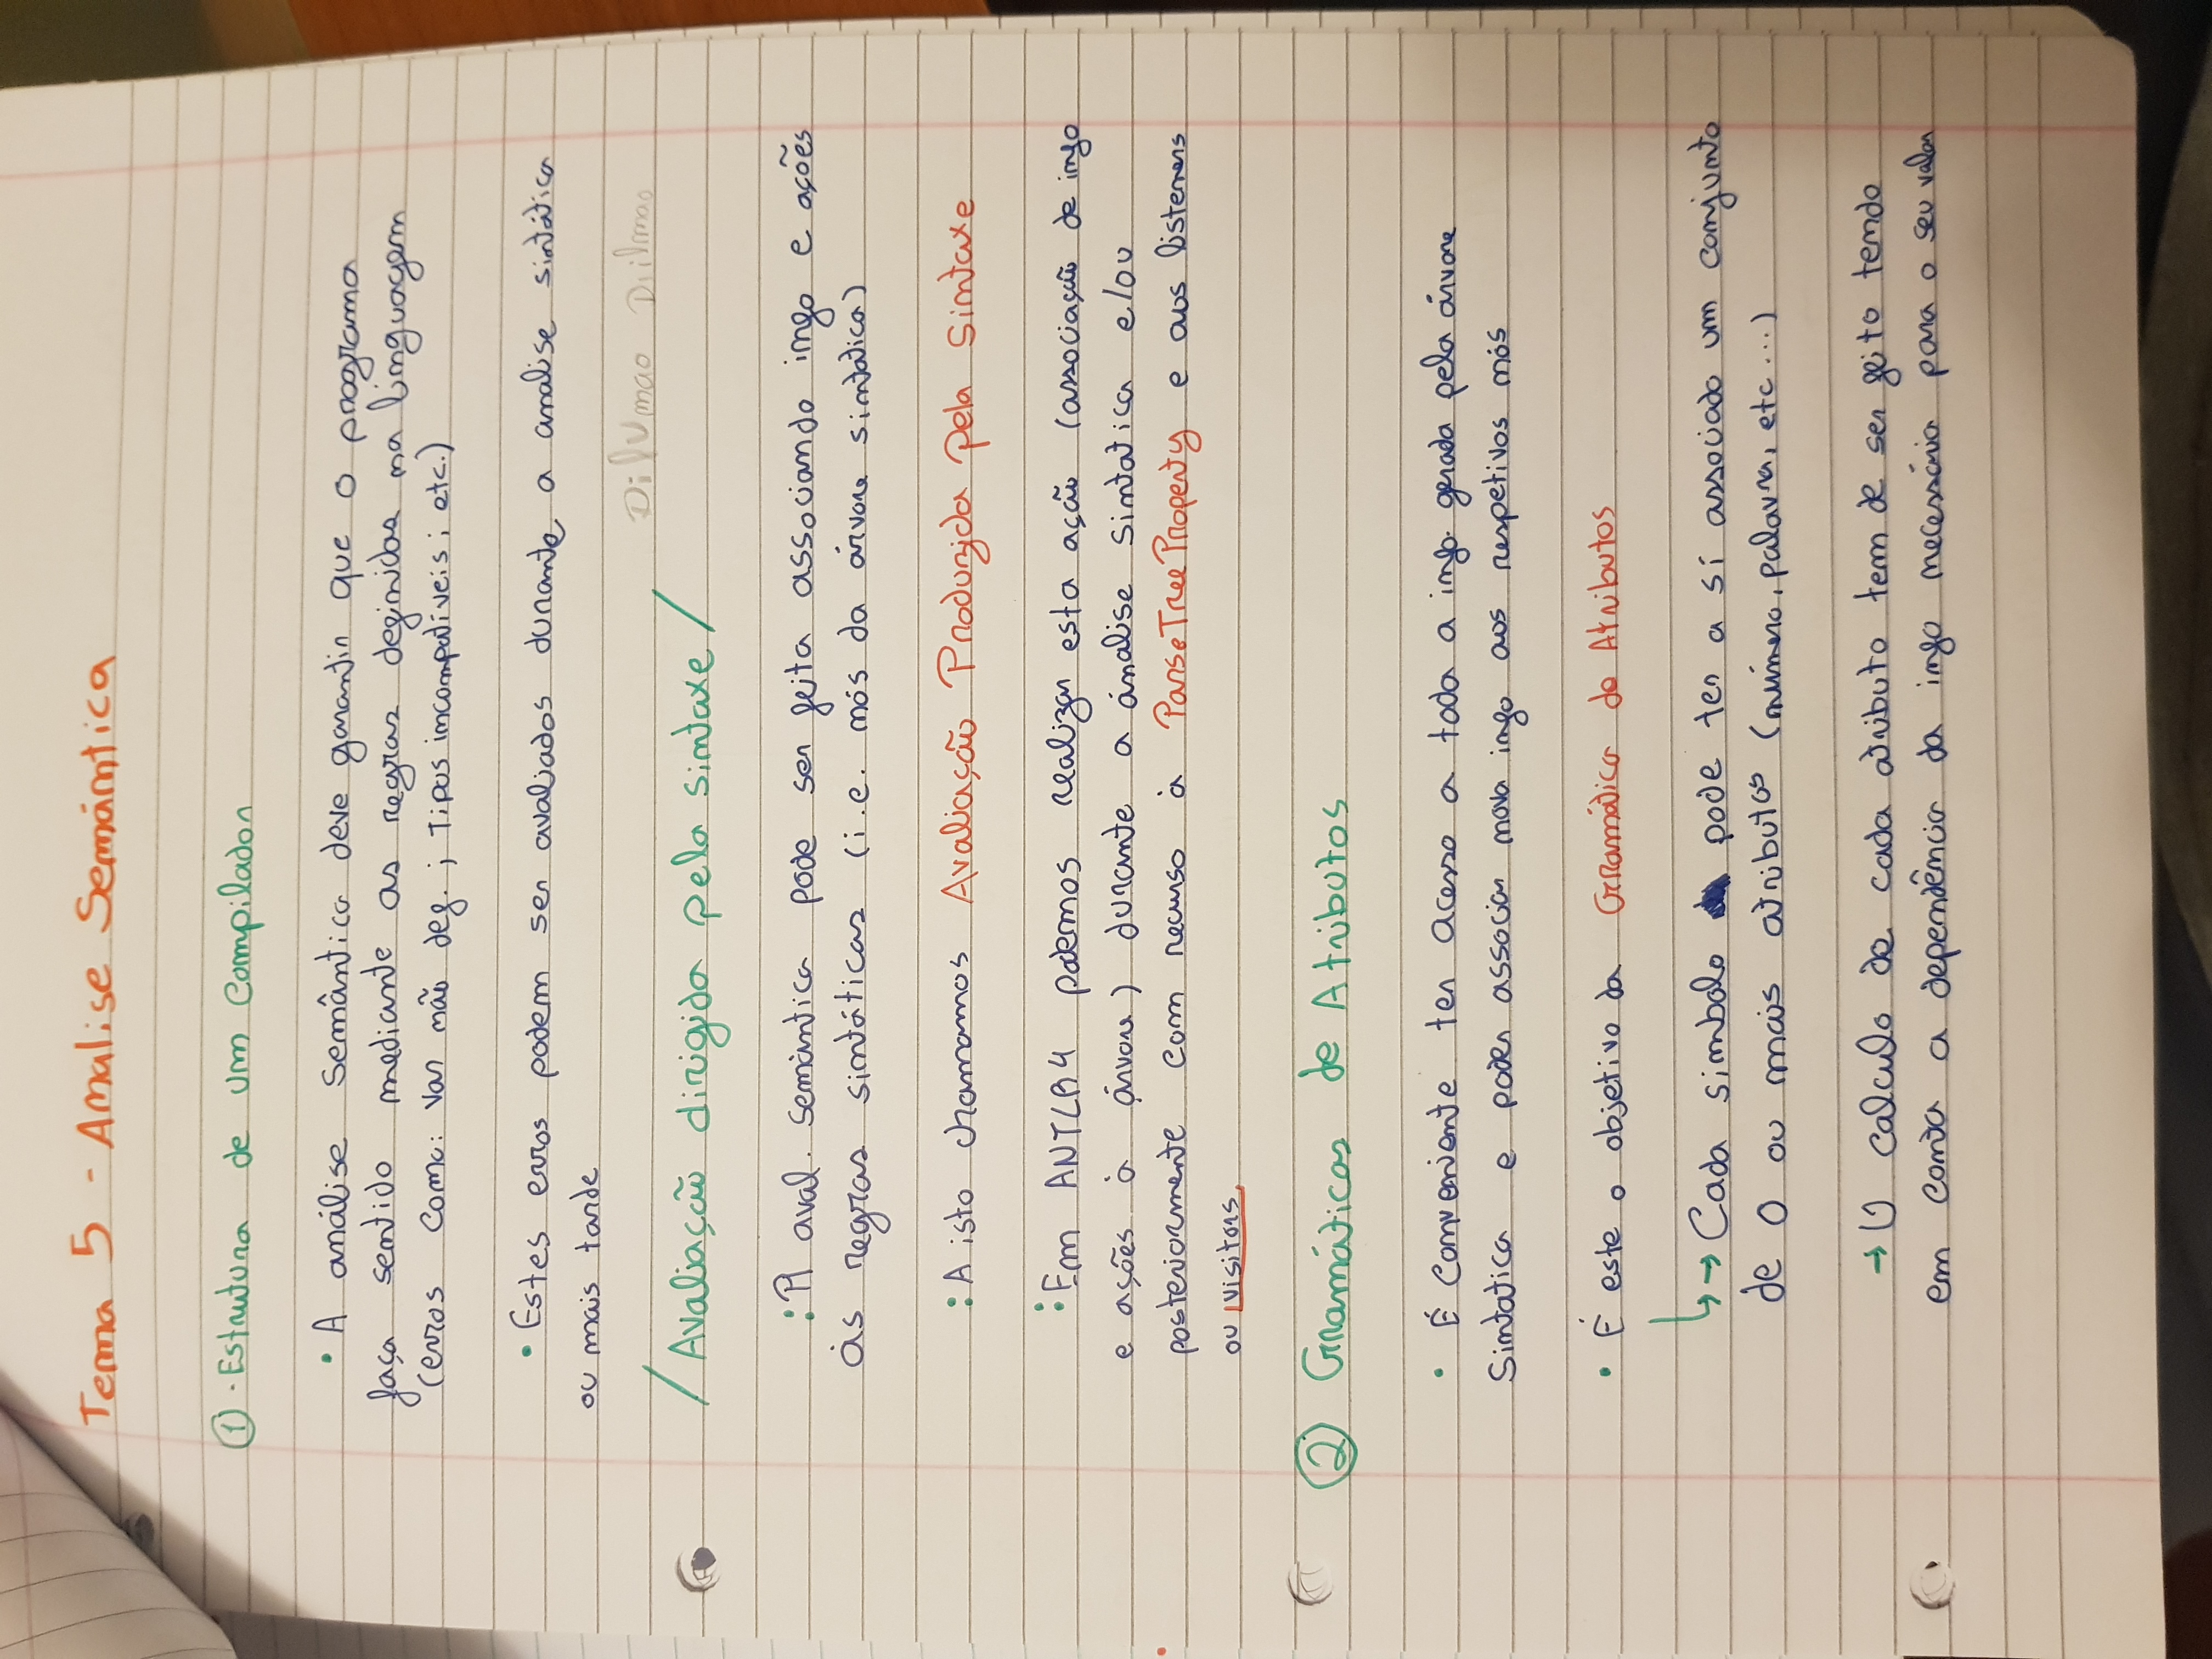 Tema 5 - Analise Semántica
① · Estrutura de um Compilador
• A análise Semântica deve garantir que o programa
faça sentido mediante as regras definidas na linguagem
(erros como: var não def. ; Tipos incompatíveis ; etc.)
• Estes erros podem ser avaliados durante a analise sintática
ou mais tarde
/ Avaliação dirigida pela sintaxe /
: A aval. semântica pode ser feita associando info e ações
às regras sintáticas (i.e. nós da árvore sintatica)
: A isto chamamos Avaliação Produzida Pela Sintaxe
: Em ANTLR4 podemos realizar esta ação (associação de info
e ações à árvore) durante a ánalise sintatica e/ou
posteriormente com recurso à ParseTreeProperty e aos listeners
ou visitors
② Gramáticas de Atributos
• É conveniente ter acesso a toda a info. gerada pela árvore
Sintatica e poder associar nova info aos respetivos nós
• É este o objetivo da Gramática de Atributos
↳→ Cada simbolo pode ter a sí associado um conjunto
de 0 ou mais atributos (número, palavra, etc...)
→ O calculo de cada atributo tem de ser feito tendo
em conta a dependência da info necessária para o seu valor